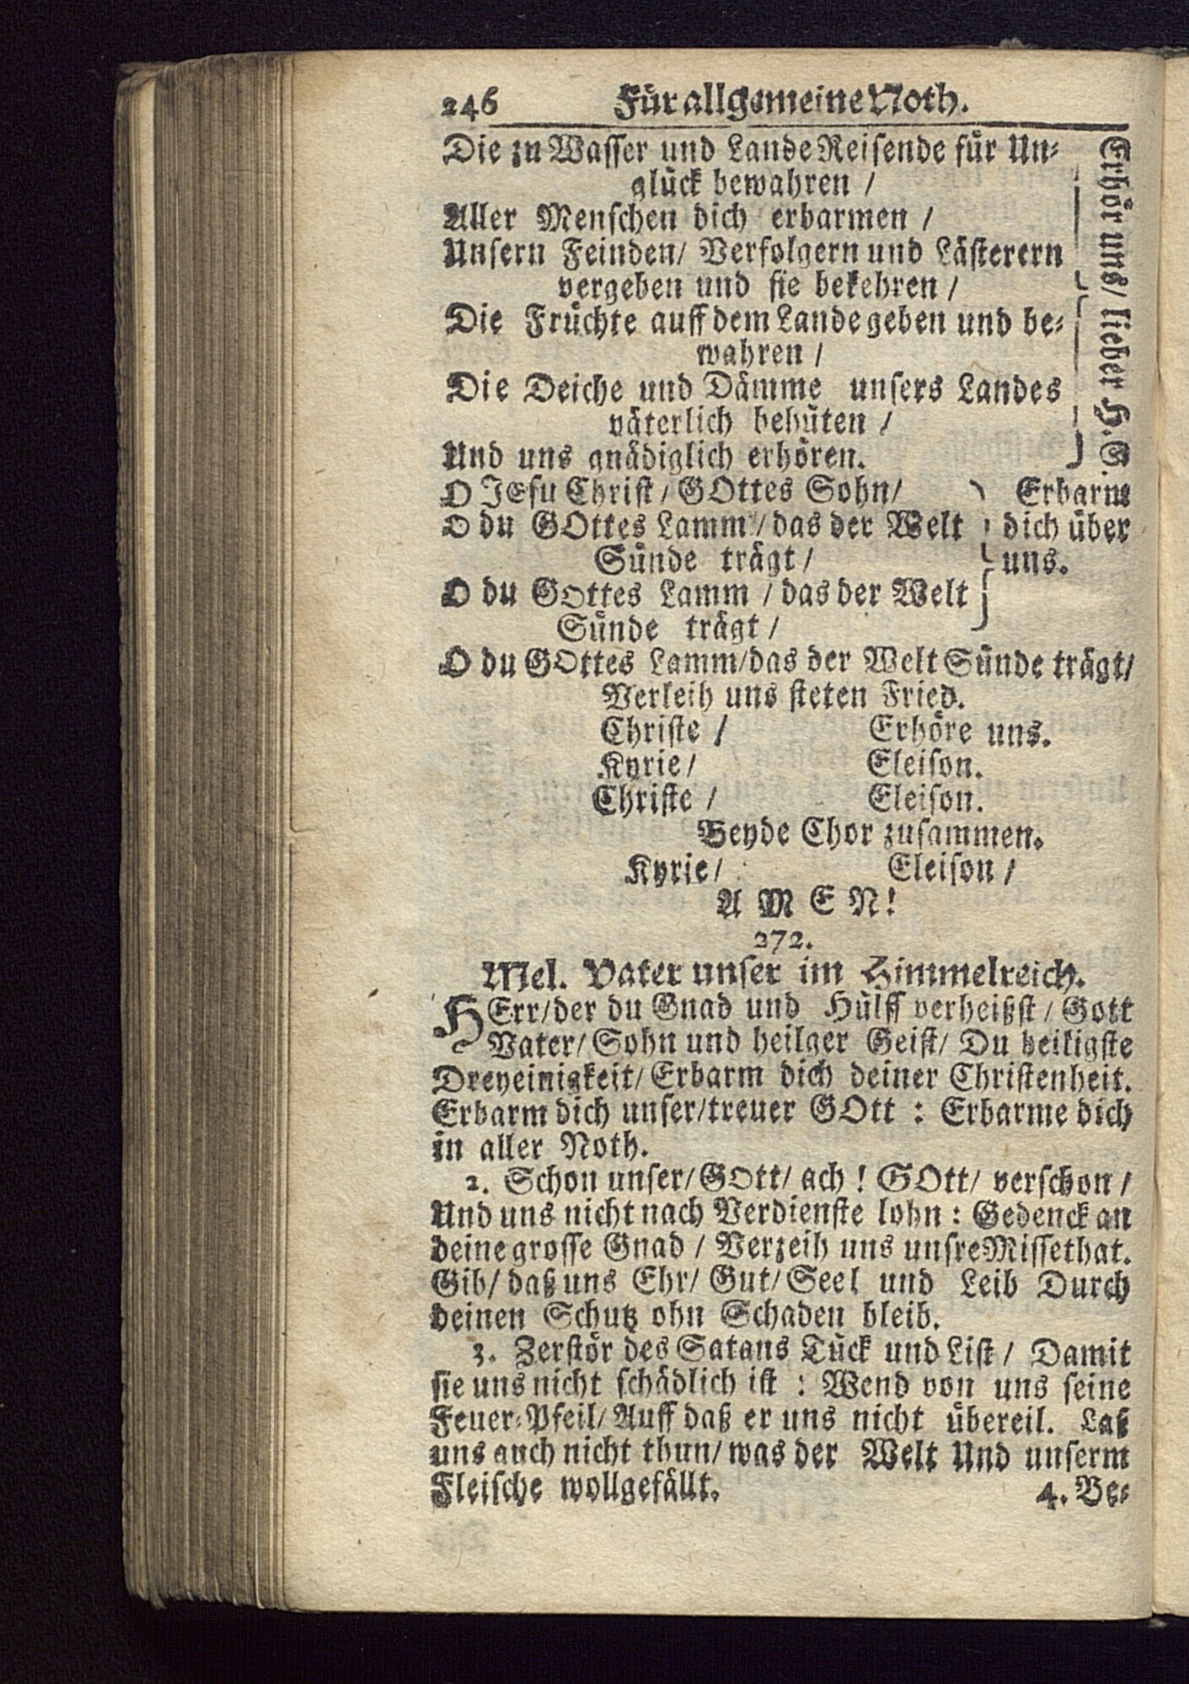 246 Für allgemeine Noth.
Die zu Wasser und Lande Reisende für Un-
glück bewahren /
Aller Menschen dich erbarmen /
Unsern Feinden/ Verfolgern und Lästerern
vergeben und sie bekehren /
Die Früchte auff dem Lande geben und be-
wahren /
Die Deiche und Dämme unsers Landes
väterlich behüten /
Und uns gnädiglich erhören.
Erhör uns/ lieber H. G
O JEsu Christ / GOttes Sohn/ Erbarme
O du GOttes Lamm / das der Welt dich über
Sünde trägt / uns.
O du GOttes Lamm / das der Welt
Sünde trägt /
O du GOttes Lamm/das der Welt Sünde trägt/
Verleih uns steten Fried.
Christe / Erhöre uns.
Kyrie / Eleison.
Christe / Eleison.
Beyde Chor zusammen.
Kyrie / Eleison /
A M E N!
272.
Mel. Vater unser im Himmelreich.
HErr/der du Gnad und Hülff verheißst / Gott
Vater/ Sohn und heilger Geist/ Du heiligste
Dreyeinigkeit/ Erbarm dich deiner Christenheit.
Erbarm dich unser/treuer GOtt : Erbarme dich
in aller Noth.
2. Schon unser/ GOtt/ ach ! GOtt/ verschon /
Und uns nicht nach Verdienste lohn : Gedenck an
deine grosse Gnad / Verzeih uns unsre Missethat.
Gib/ daß uns Ehr/ Gut/ Seel und Leib Durch
deinen Schutz ohn Schaden bleib.
3. Zerstör des Satans Tück und List / Damit
sie uns nicht schädlich ist : Wend von uns seine
Feuer-Pfeil/ Auff daß er uns nicht übereil. Laß
uns auch nicht thun/ was der Welt Und unserm
Fleische wollgefällt. 4. Be-